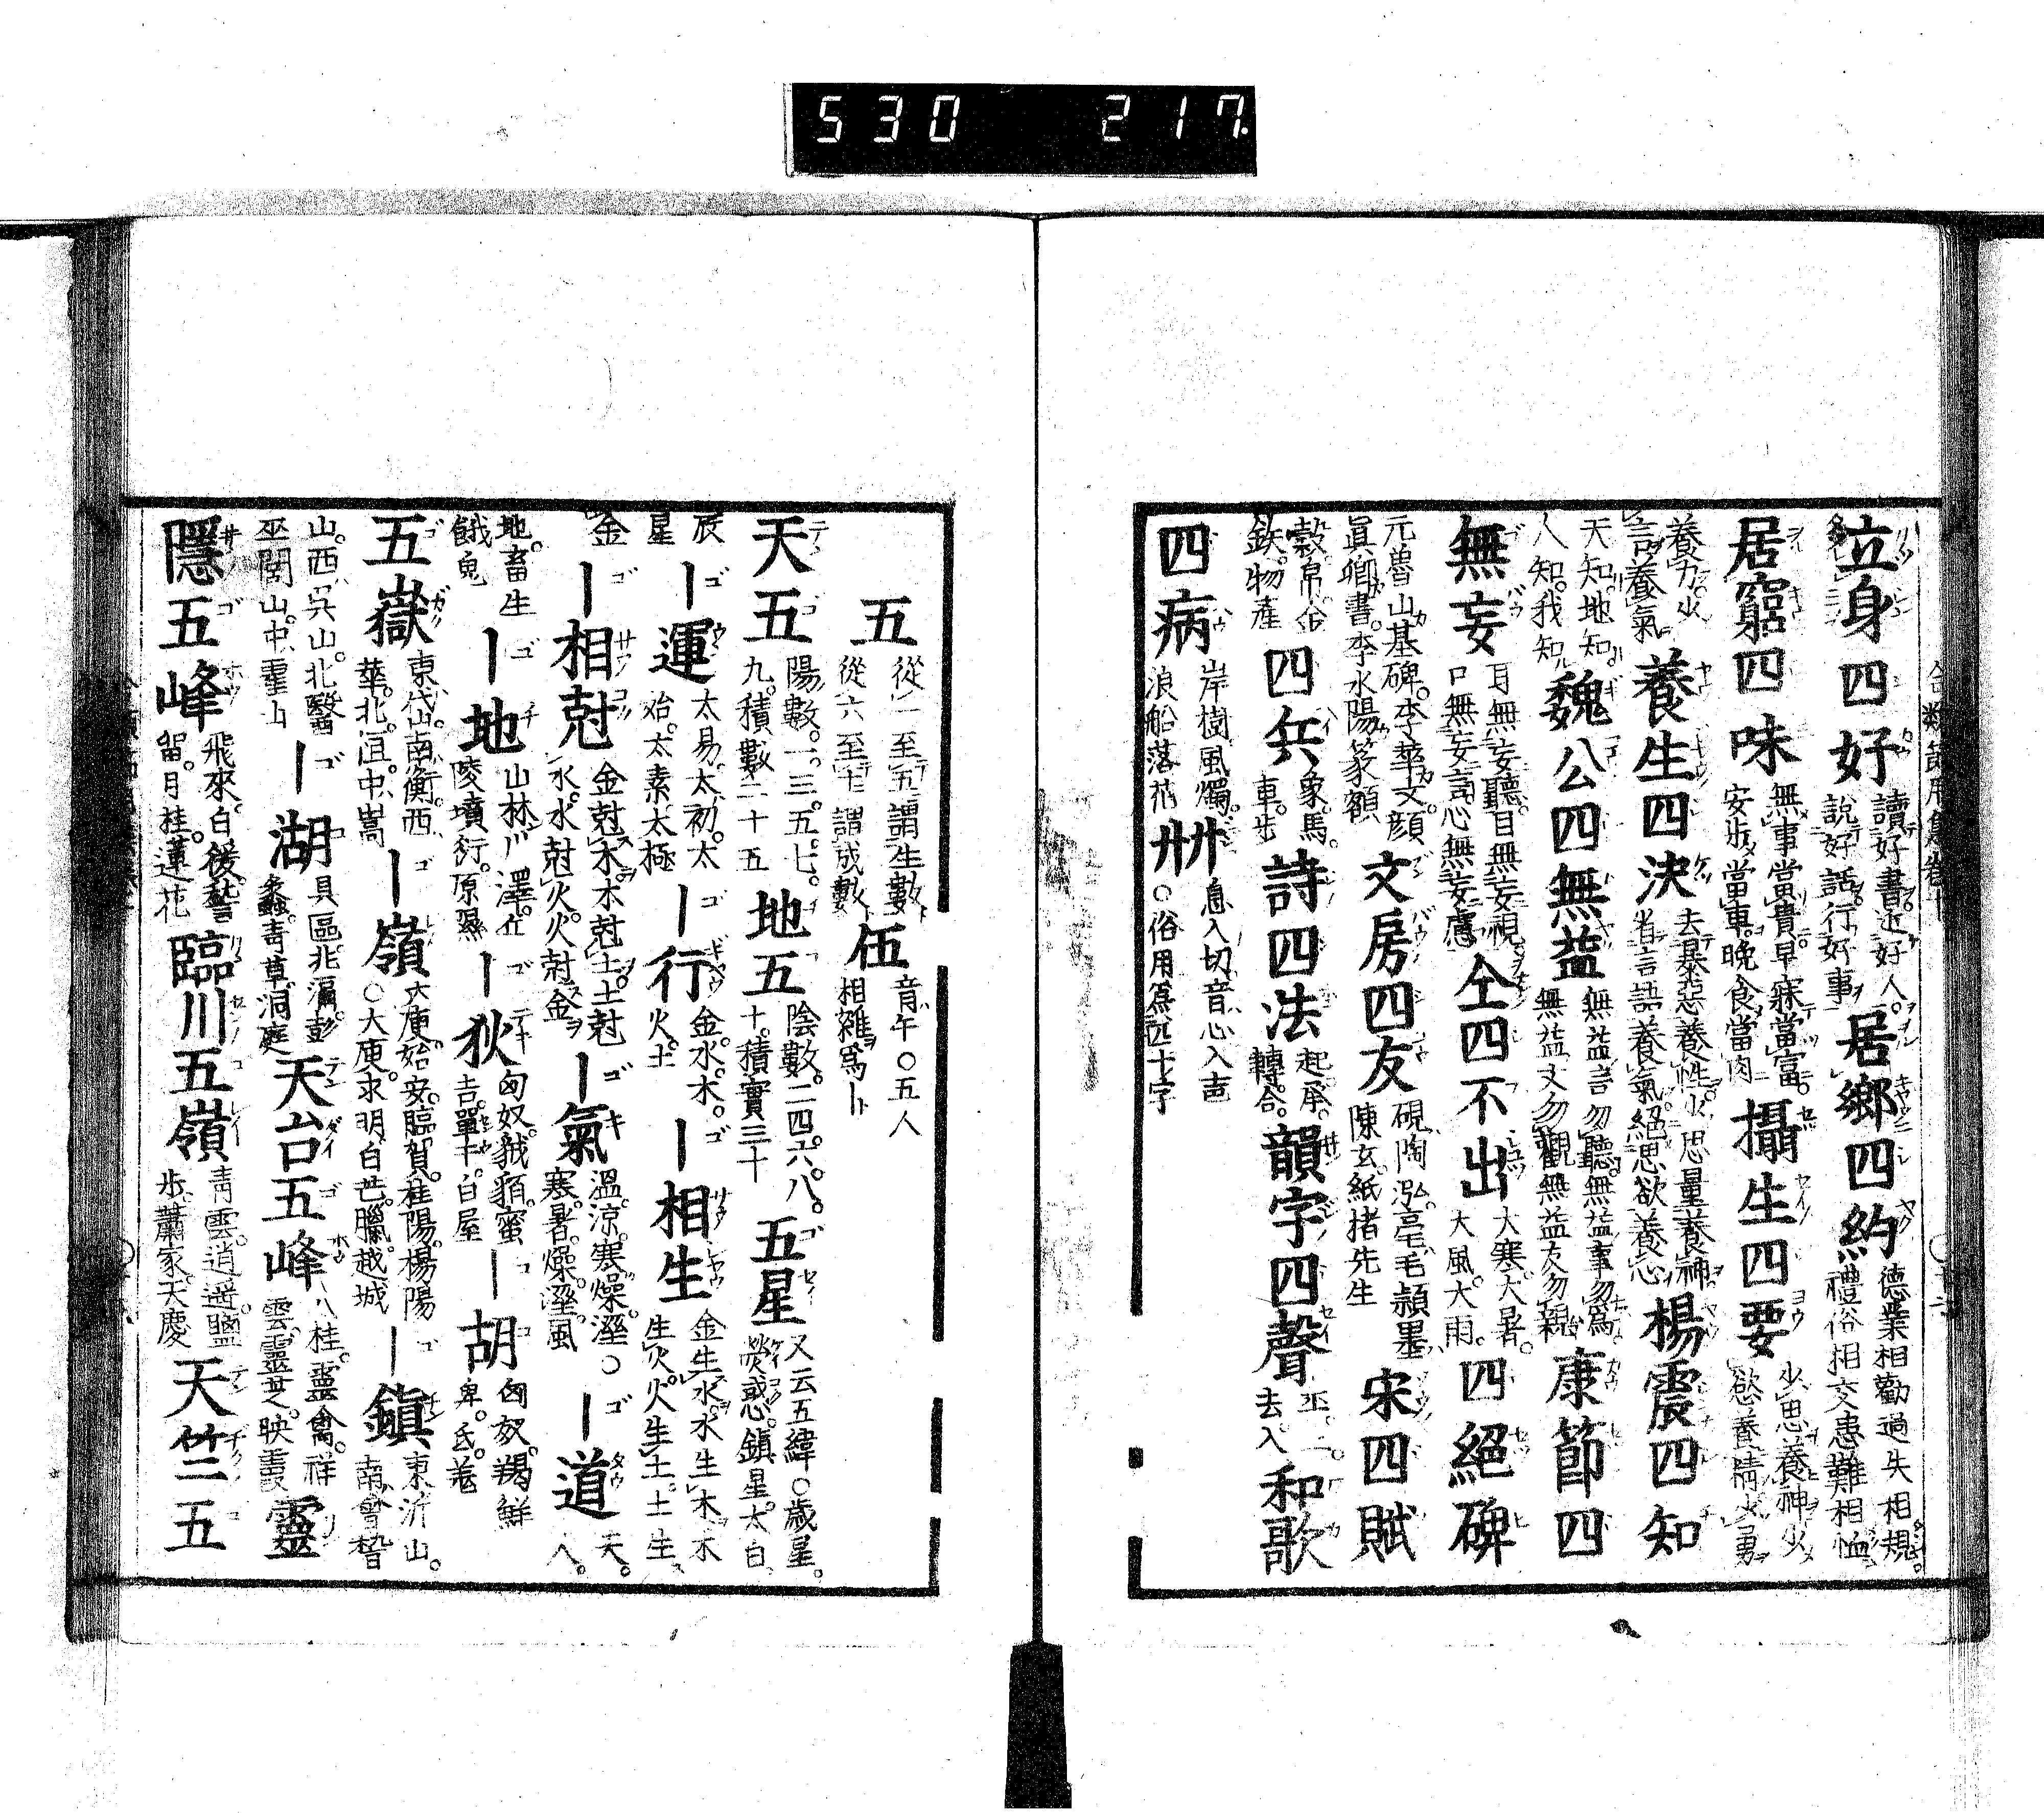 530 217.
合類節用集卷十
立身四好 讀好書近好人。
說好話行好事
居鄉四約 德業相勸過失相規
禮俗相交患難相恤
居窮四味 無事當貴早寐當富
安步當車晚食當肉
攝生四要 少思養神少
慾養精少勇
養力少
言養氣
養生四決 去暴怒養性少思量養神
省言語養氣絕思欲養心
楊震四知
天知。地知。
人知。我知
魏公四無益 無益言勿聽無益事勿爲
無益文勿觀無益友勿親
康節四
無妄 耳無妄聽。目無妄視
口無妄言心無妄慮
仝四不出 大寒。大暑。
大風。大雨。
四絕碑
元魯山墓碑。李華文。顏
眞卿書。李水陽篆額
文房四友 硯陶泓。毫毛頴墨
陳玄。紙楮先生
宋四賦
穀帛谷
鉄。物產
四兵 象。馬。
車。步
詩四法 起。承。
轉。合。
韻字四聲 平。上。
去。入
和歌
四病 岸樹。風燭。
浪船落花
卌 息入切。音心入声
○俗用爲四十字
五 從一至五謂生數
從六至十謂成數
伍 音午○五人
相雜爲｜
天五 陽數。一。三。五。七。
九。積數二十五
地五 陰數。二四。六。八。
十。積實三十
五星 又云五緯○歲星。
熒惑。鎮星。太白
辰
星
｜運 太易。太初。太
始。太素太極
｜行 金。水。木。
火。土
｜相生 金生水。水生木木
生火。火生土。土生
金
｜相尅 金尅木木尅土。土尅
水。水尅火火尅金
｜氣 溫。涼。寒燥。溼。○
寒。暑。燥。溼。風
｜道 天。
人。
地。畜生
餓鬼
｜地 山林川澤。丘
陵墳衍。原隰
｜狄 匈奴。䝤貊。蜜
吉。單于。白屋
｜胡 匈奴。羯鮮
卑。氐。羌
五嶽 東岱。南衡。西
華。北。恒中。嵩
｜嶺 大庾。始安。臨賀。桂陽。楊陽
○大庾。求明。白芒。臘。越城
｜鎮 東沂山。
南會稽
山。西吳山。北醫
巫閭山。中霍山
｜湖 具區。兆滆。彭
蠡。靑草。洞庭
天台五峰 八桂。靈禽。祥
雲。靈芝。映霞
靈
隱五峰 飛來。白猨。𥡴
留。月桂。蓮花
臨川五嶺 靑雲。逍遥。鹽
步。蕭家。天慶
天竺五